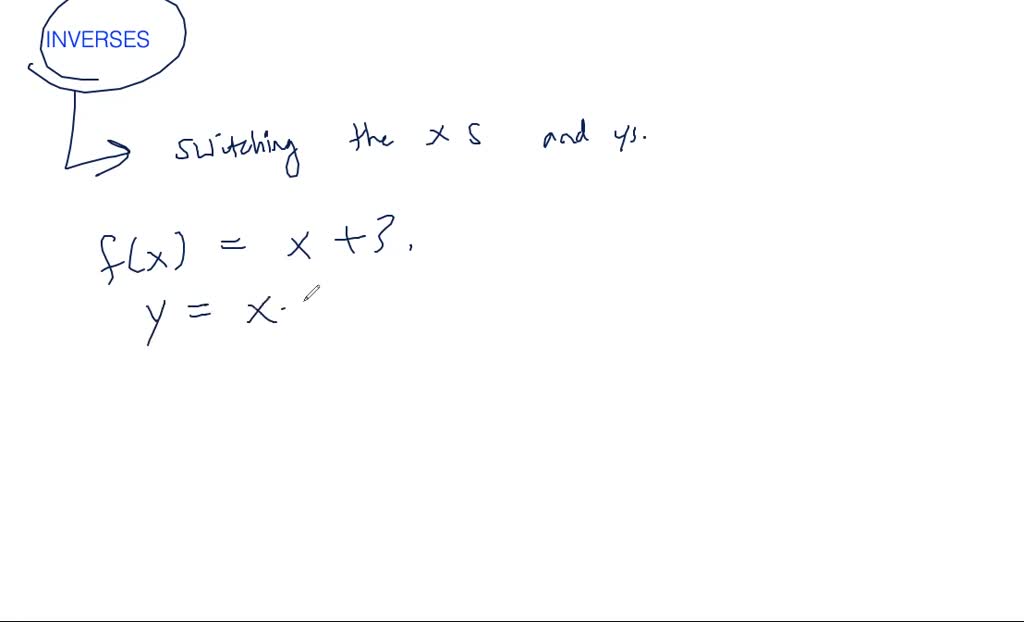 INVERSES
switching the x s and ys.
f(x) = x + 3.
y = x